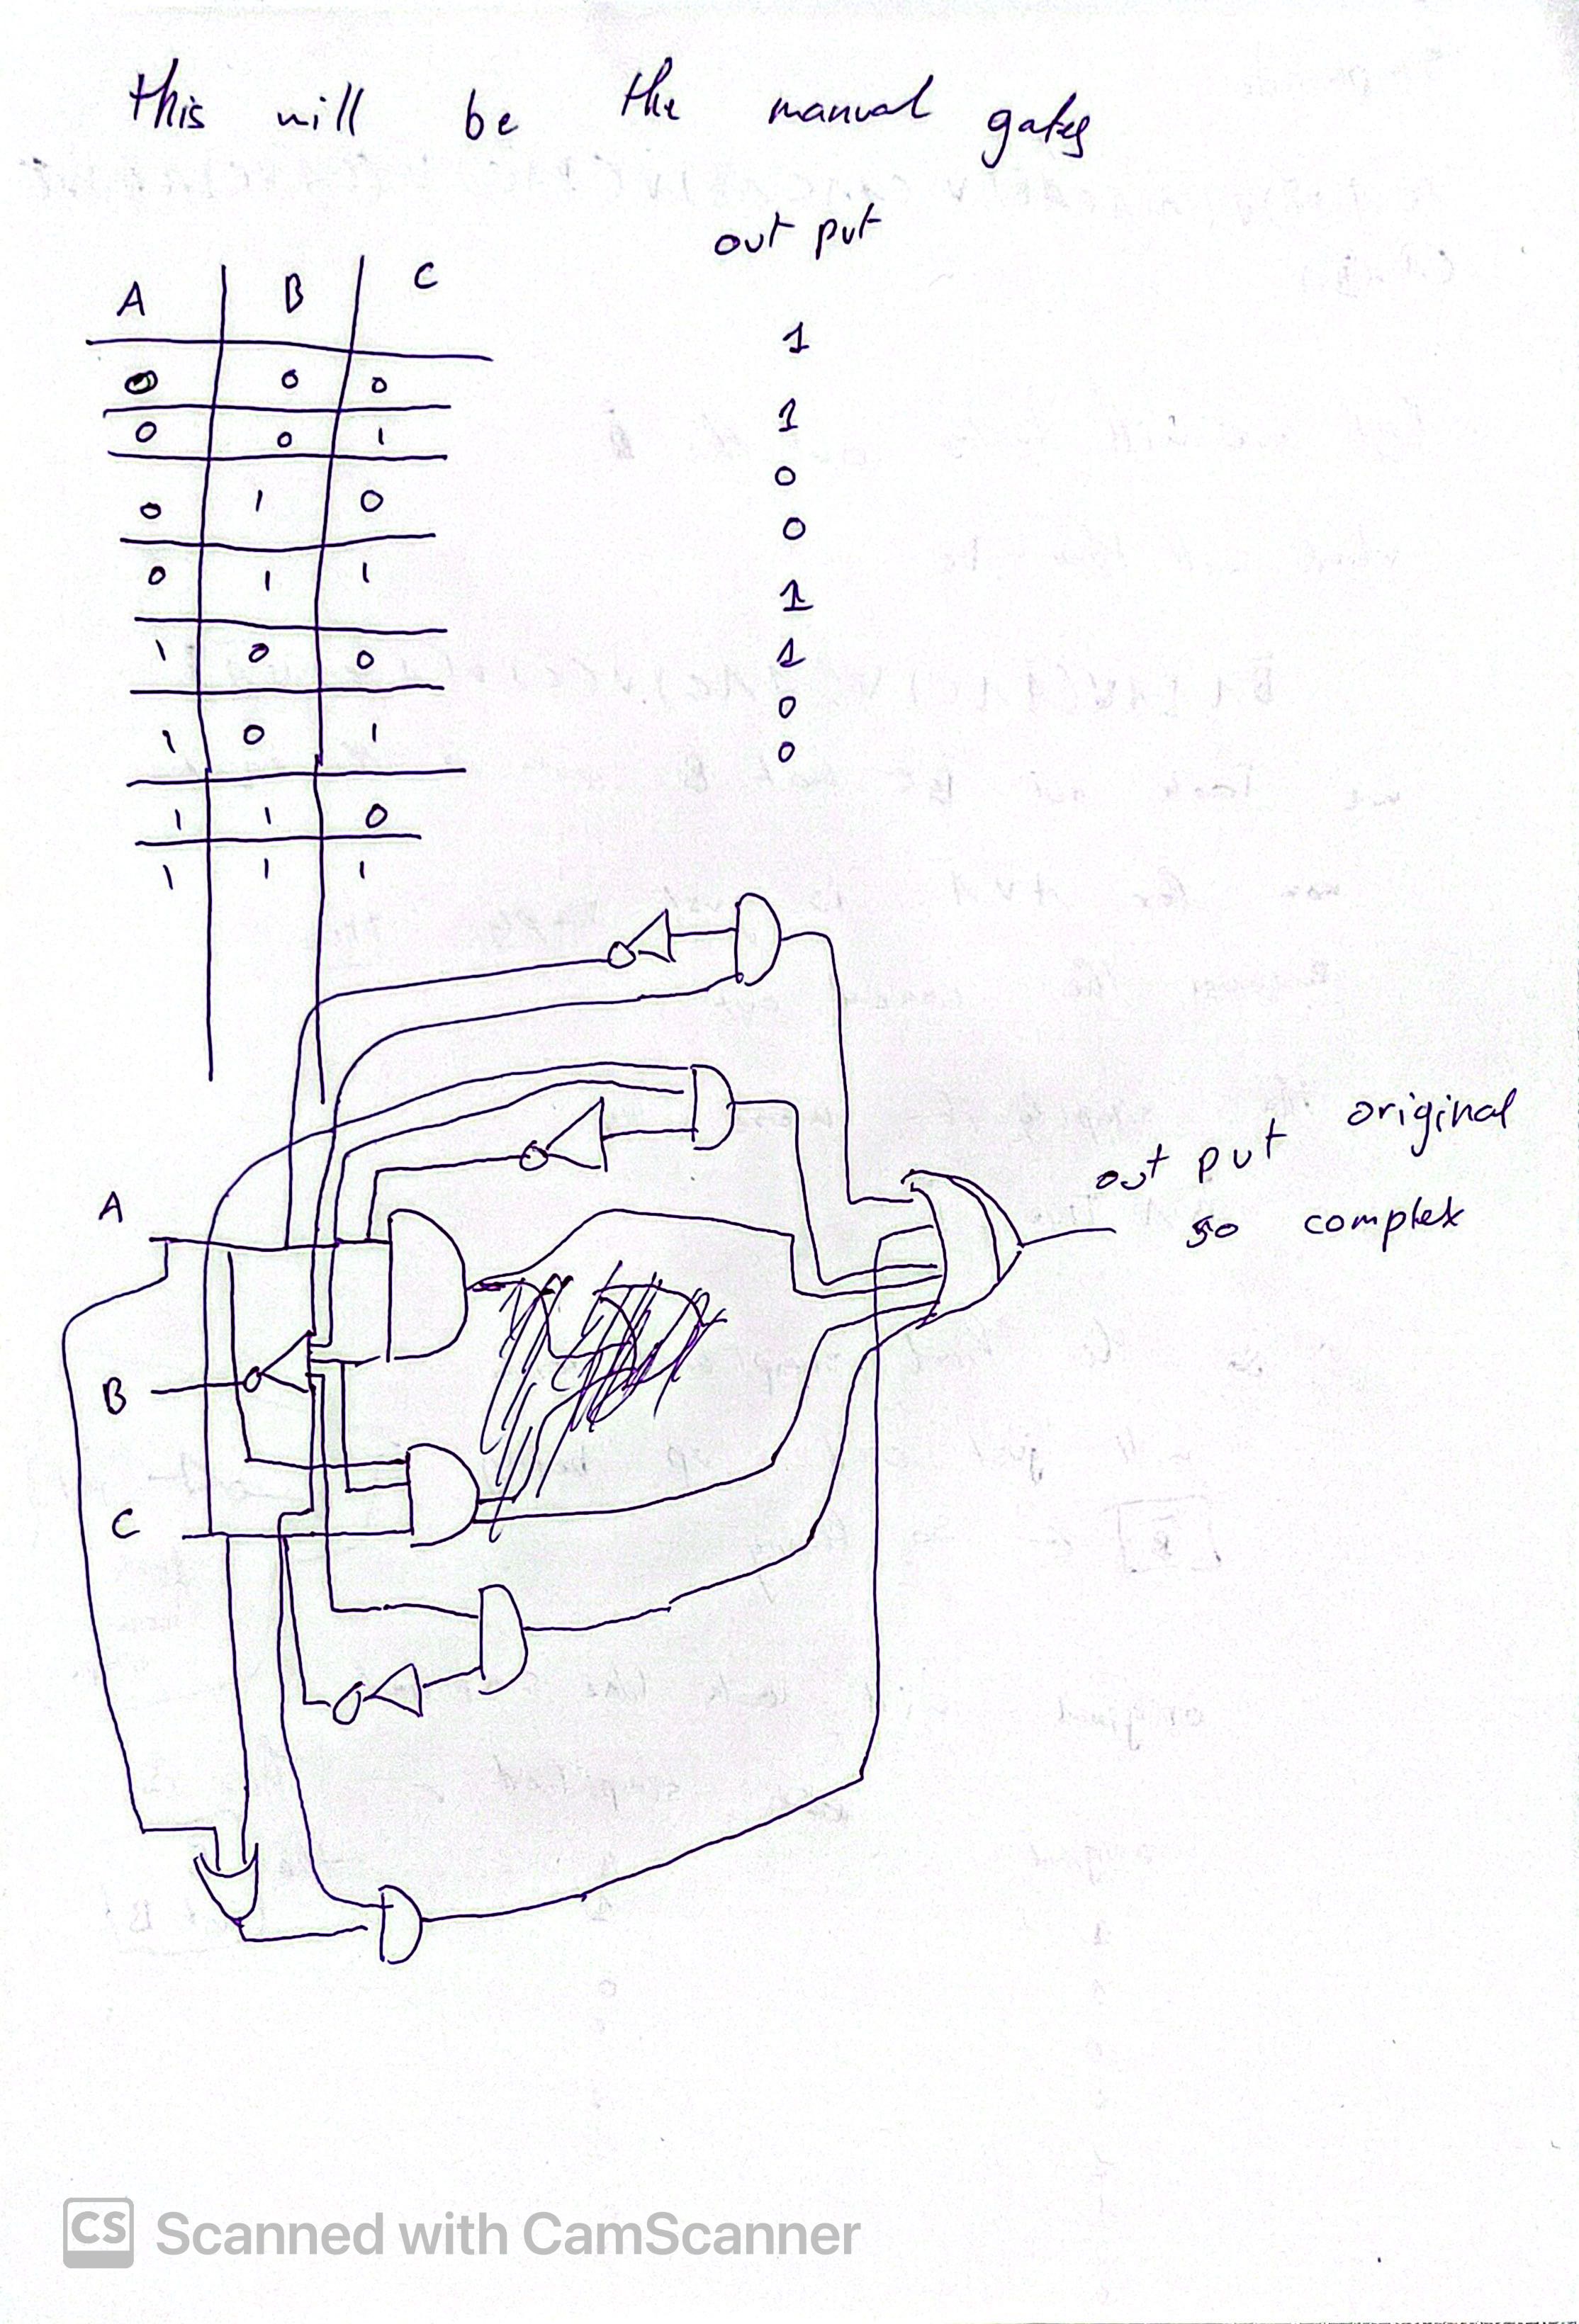 this will be the manual gates
out put
A B C
1
0 0 0
1
0 0 1
0
0 1 0
0
0 1 1
1
1 0 0
1
1 0 1
0
0
1 1 0
1 1 1
out put original
so complex
A
B
C
CS Scanned with CamScanner